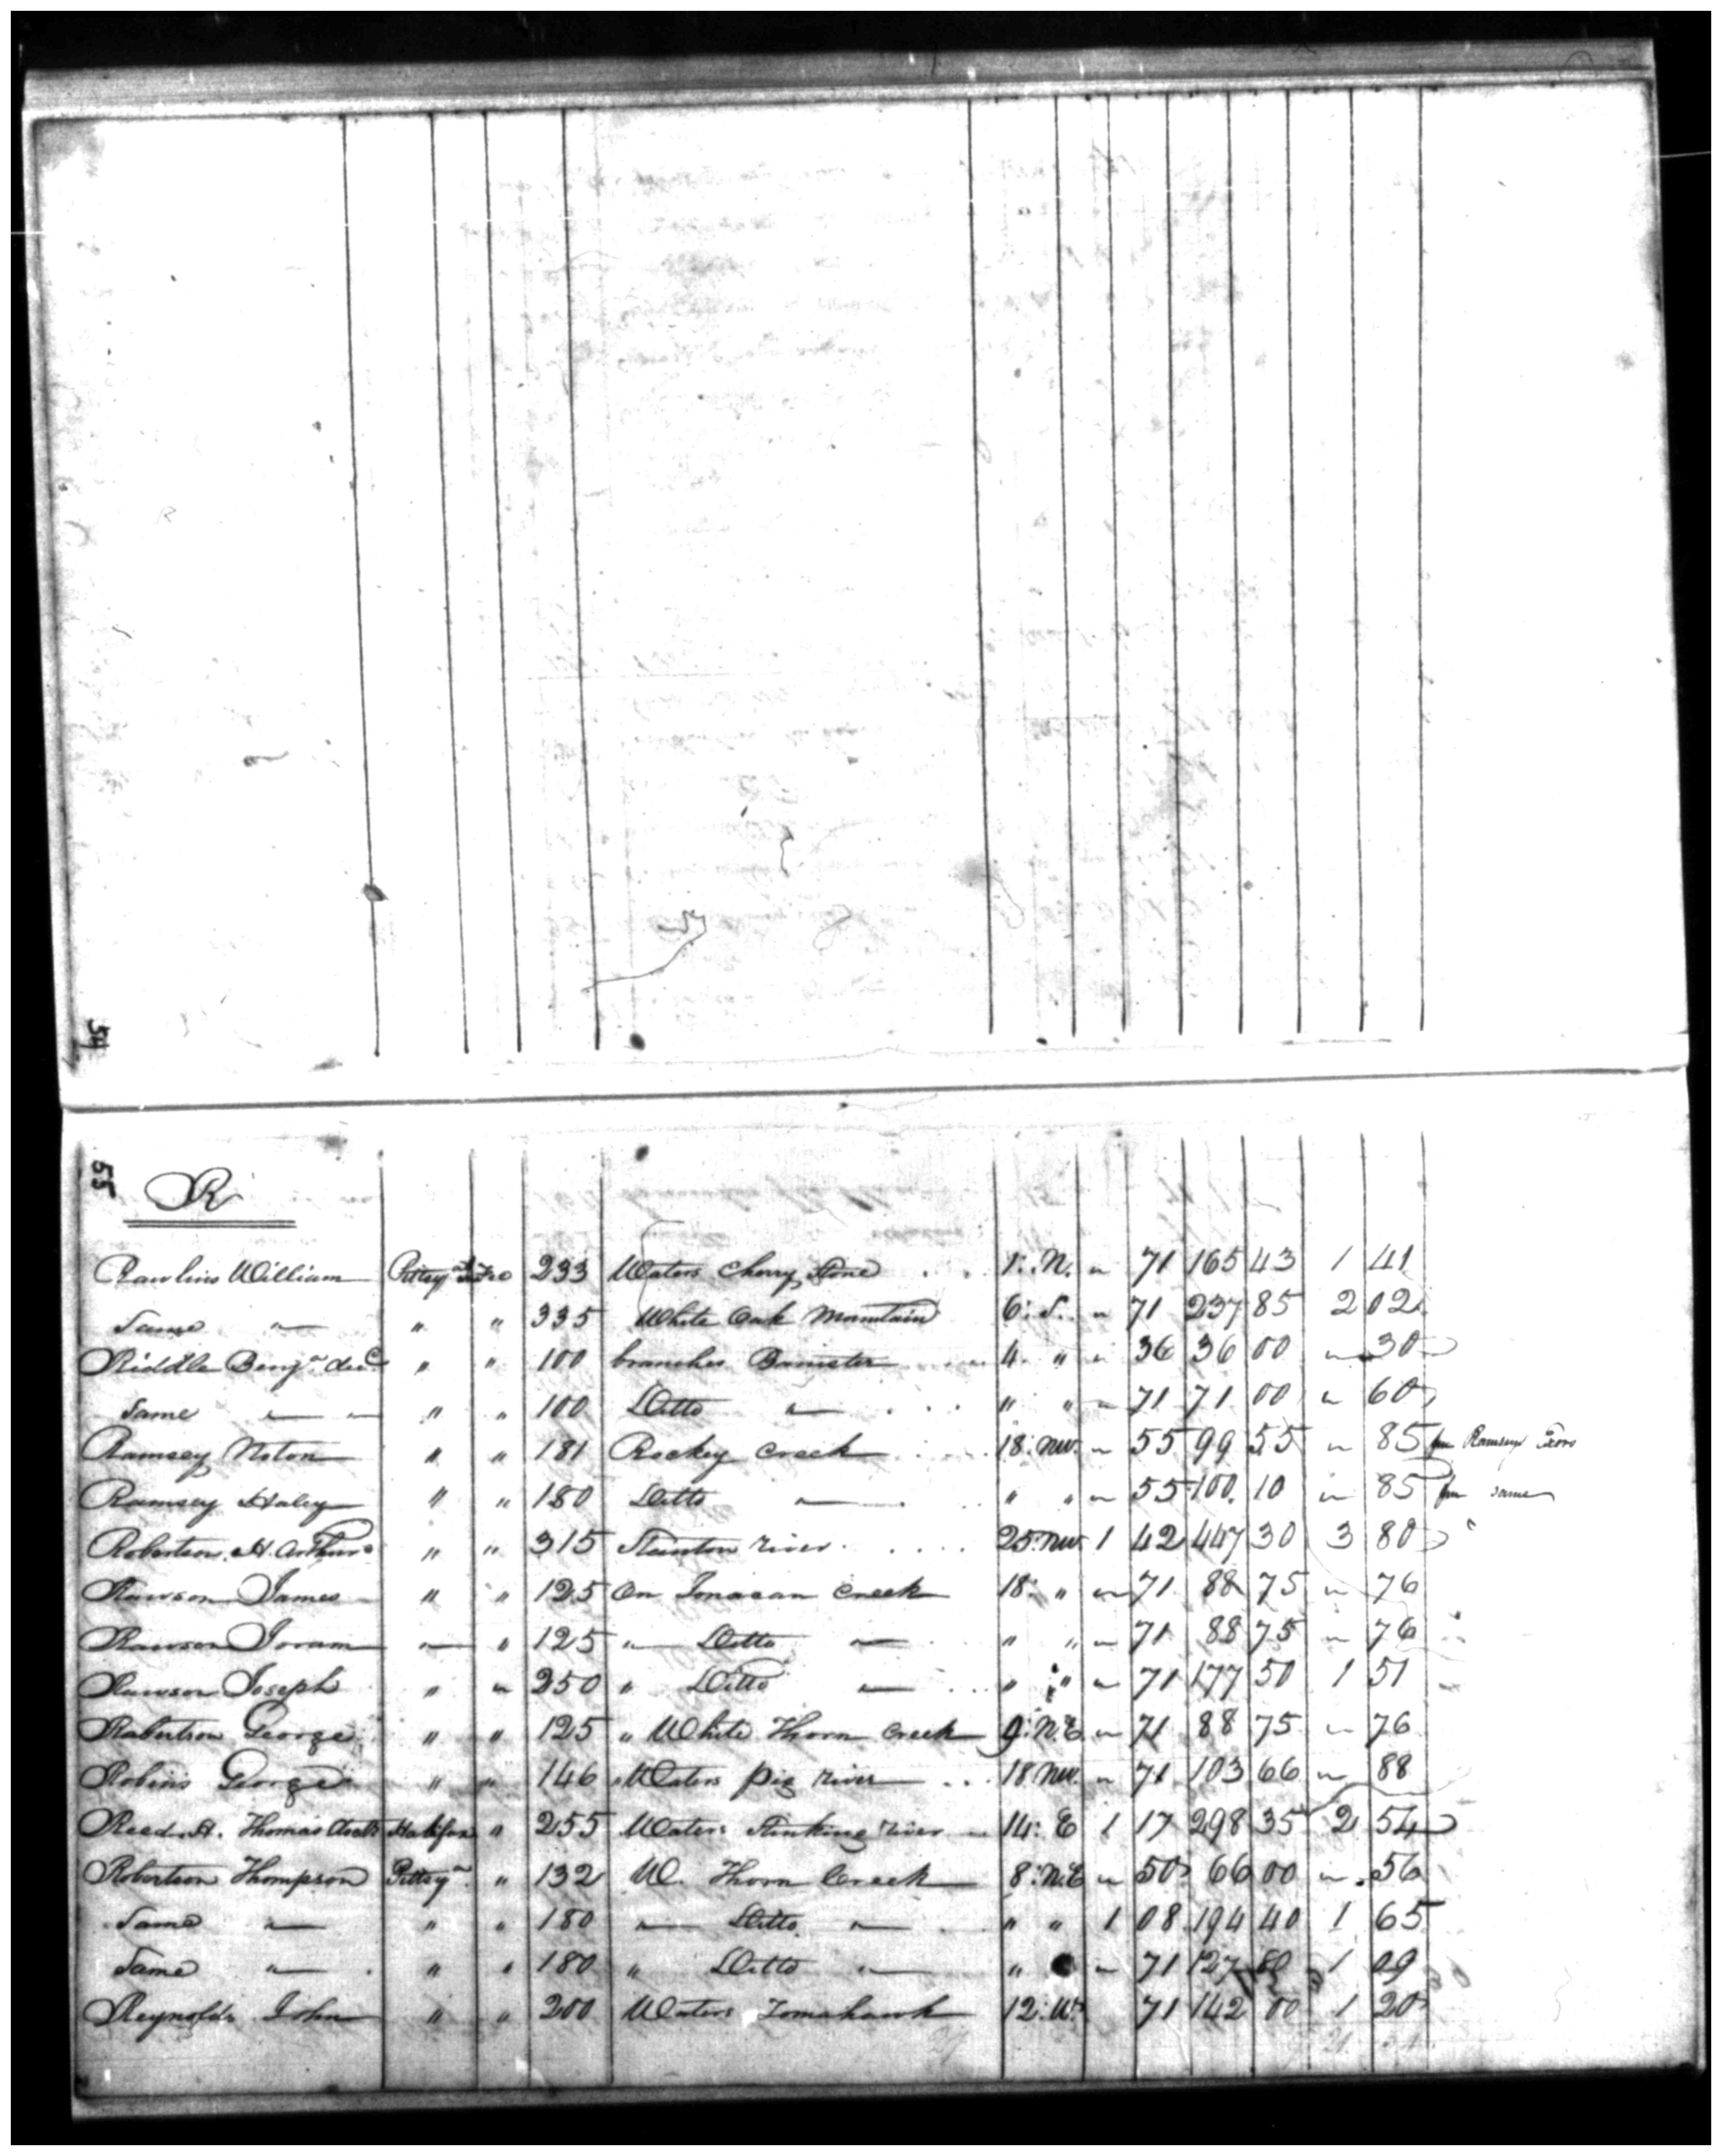 54
55
R
Rawlins William Pittsya Fee 233 Waters Cherry Stone . . 1: N. " 71 165 43 1 41
Same " " " 335 White Oak Mountain 6: S. " 71 237 85 2 02
Riddle Benja decd " " 100 branches Banister 4 " " 36 36 00 " 30
Same " " " 100 Ditto " . . . " " " 71 71 00 " 60
Ramsey Noton " " 181 Rockey Creek 18: NW. " 55 99 55 " 85 fm Ramseys Exors
Ramsey Haley " " 180 Ditto " " " " 55 100 10 " 85 fm same
Robertson, H. Arthur " " 315 Staunton river . . . . . 25: NW 1 42 447 30 3 80
Rawson James " " 125 On Tomacan Creek 18: " " 71 88 75 " 76
Rawson Joram " " 125 " Ditto " " " " 71 88 75 " 76
Rawson Joseph " " 250 " Ditto " . . . " " " 71 177 50 1 51
Robertson George " " 125 " White Thorn Creek 9: N.E. " 71 88 75 " 76
Robins George " " 146 " Waters pig river . . . 18 NW. " 71 103 66 " 88
Reed. A. Thomas Halifax " 255 Waters Stinking river 14: E 1 17 298 35 2 54
Robertson Thompson Pittsya " 132 W. Thorn Creek 8: N.E " 50 66 00 " 56
Same " " " 180 " Ditto " " " 1 08 194 40 1 65
Same " " " 180 " Ditto " " " 71 127 80 1 09
Reynolds John " " 200 Waters Tomahawk 12: W 71 142 00 1 20